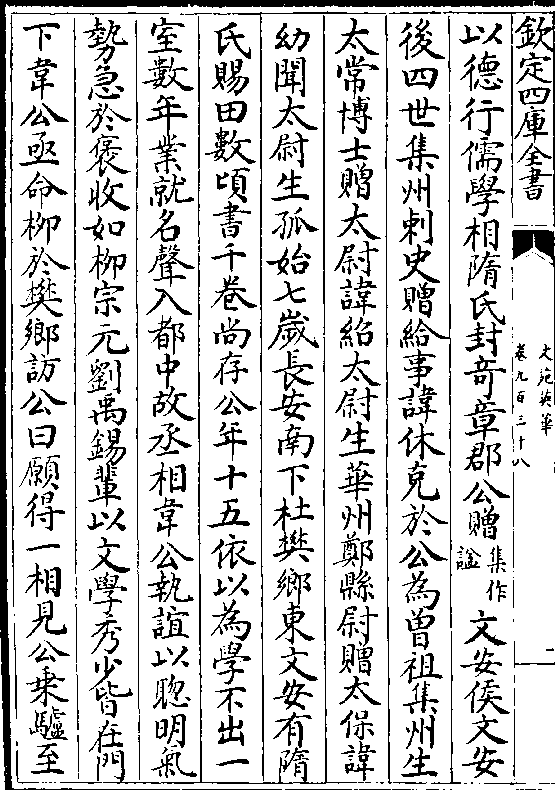 欽定四庫全書
文苑英華
卷九百三十八
二
以德行儒學相隋氏封竒章郡公贈集作諡文安侯文安
後四世集州刺史贈給事諱休克於公為曽祖集州生
太常博士贈太尉諱紹太尉生華州鄭縣尉贈太保諱
幼聞太尉生孤始七歲長安南下杜樊鄉東文安有隋
氏賜田數頃書千卷尚存公年十五依以為學不出一
室數年業就名聲入都中故丞相韋公執誼以聰明氣
勢急於褒收如柳宗元劉禹錫輩以文學秀少皆在門
下韋公亟命柳於樊鄉訪公曰願得一相見公乗驢至